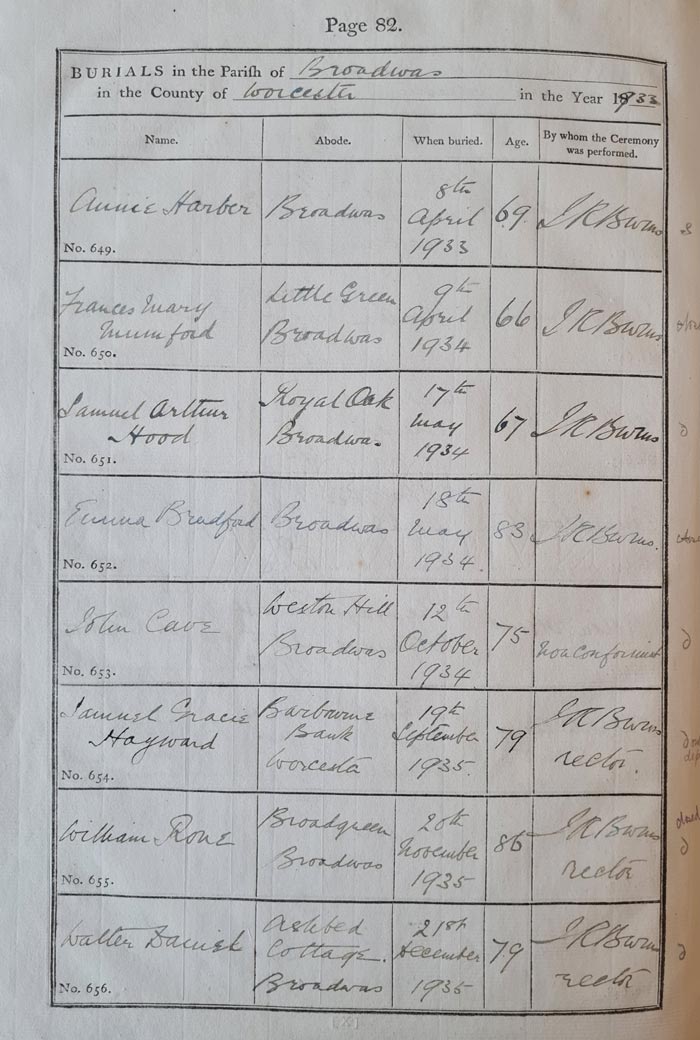 Page 82.
BURIALS in the Parish of Broadwas
in the County of Worcester in the Year 1933
Name. Abode. When buried. Age. By whom the Ceremony was performed.
Annie Harber Broadwas 8th April 1933 69
No. 649.
Frances Mary Mumford Little Green Broadwas 9th April 1934 66
No. 650.
Samuel Arthur Hood Royal Oak Broadwas 17th May 1934 67
No. 651.
Emma Bradford Broadwas 18th May 1934. 83
No. 652.
John Cave Weston Hill Broadwas 12th October 1934 75 Nonconformist
No. 653.
Samuel Gracie Hayward Barbourne Bank Worcester 19th September 1935. 79 rector.
No. 654.
William Rone Broadgreen Broadwas 20th November 1935 86 rector
No. 655.
Walter Daniel Ashbed Cottage. Broadwas 21st December 1935 79 rector
No. 656.